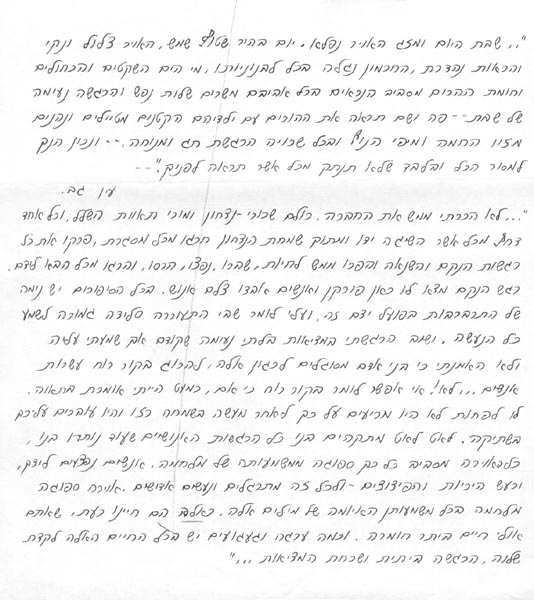 "... שבת היום ומזג האויר נפלא. יום בהיר שטוף שמש, האויר צלול ונקי
והראות נהדרת, החרמון נגלה בכל לבנוניותו, מי הים השקטים והכחולים
וחומת ההרים מסביב הנראים בכל אביבם משרים שלוות נפש והרגשה נעימה
של שבת -- פה ושם תראה את ההורים עם ילדיהם הקטנים מטיילים ונהנים
מזיו החמה ומיפי הנוף ובכל שרויה הרגשת חג ומנוחה. -- ונכון הנך
למסור הכל ובלבד שלא תנתק מכל אשר תראה לפניך." --
עין גב.
"... לא הכרתי ממש את החברה. כולם שכורי-נצחון ומוכי תאוות השלל, וכל אחד
מכל אשר השיגה ידו ומתוך שמחת הנצחון חרגו מכל מסגרת, פרקו את כל
רגשות הנקם והשנאה והפכו ממש לחיות, שברו, נפצו, הרסו, והרגו מכל הבא לידם.
רגש הנקם מצא לו כאן פורקן ואנשים אבדו צלם אנוש. בכל הסיפורים יש נימה
של התרברבות בפועל ידם זה, ועלי לומר שבי התעוררה סלידה גמורה לשמע
כל הנעשה. ושוב הרגשתי במציאות בלתי נעימה שקודם אף שמעתי עליה
ולא האמנתי כי בני אדם מסוגלים לכגון אלה, להרוג בקור רוח עשרות
אנשים... לא! אי אפשר לומר בקור רוח כי אם, כמעט הייתי אומרת בתאוה.
לו לפחות לא היו מריעים על כך לאחר מעשה בשמחה כזו והיו עוברים על-כך
בשתיקה. לאט לאט מתקהים בנו כל הרגשות האנושיים שעוד נותרו בנו,
כל האוירה מסביב כל כך ספוגה ממשמעותה של מלחמה. אנשים נפצעים לידך,
ורעש היריות והפיצוצים - ולכל זה מתרגלים ונעשים אדישים. אוירה ספוגה
מלחמה בכל משמעותן האיומה של מילים אלה. כאלה הם חיינו כעת, שאתם
אולי חיים ביתר חומרה. וכמה ערגה וגעגועים יש בכל החיים האלה לקצת
שלוה, הרגשה ביתית ושכחת המציאות..."